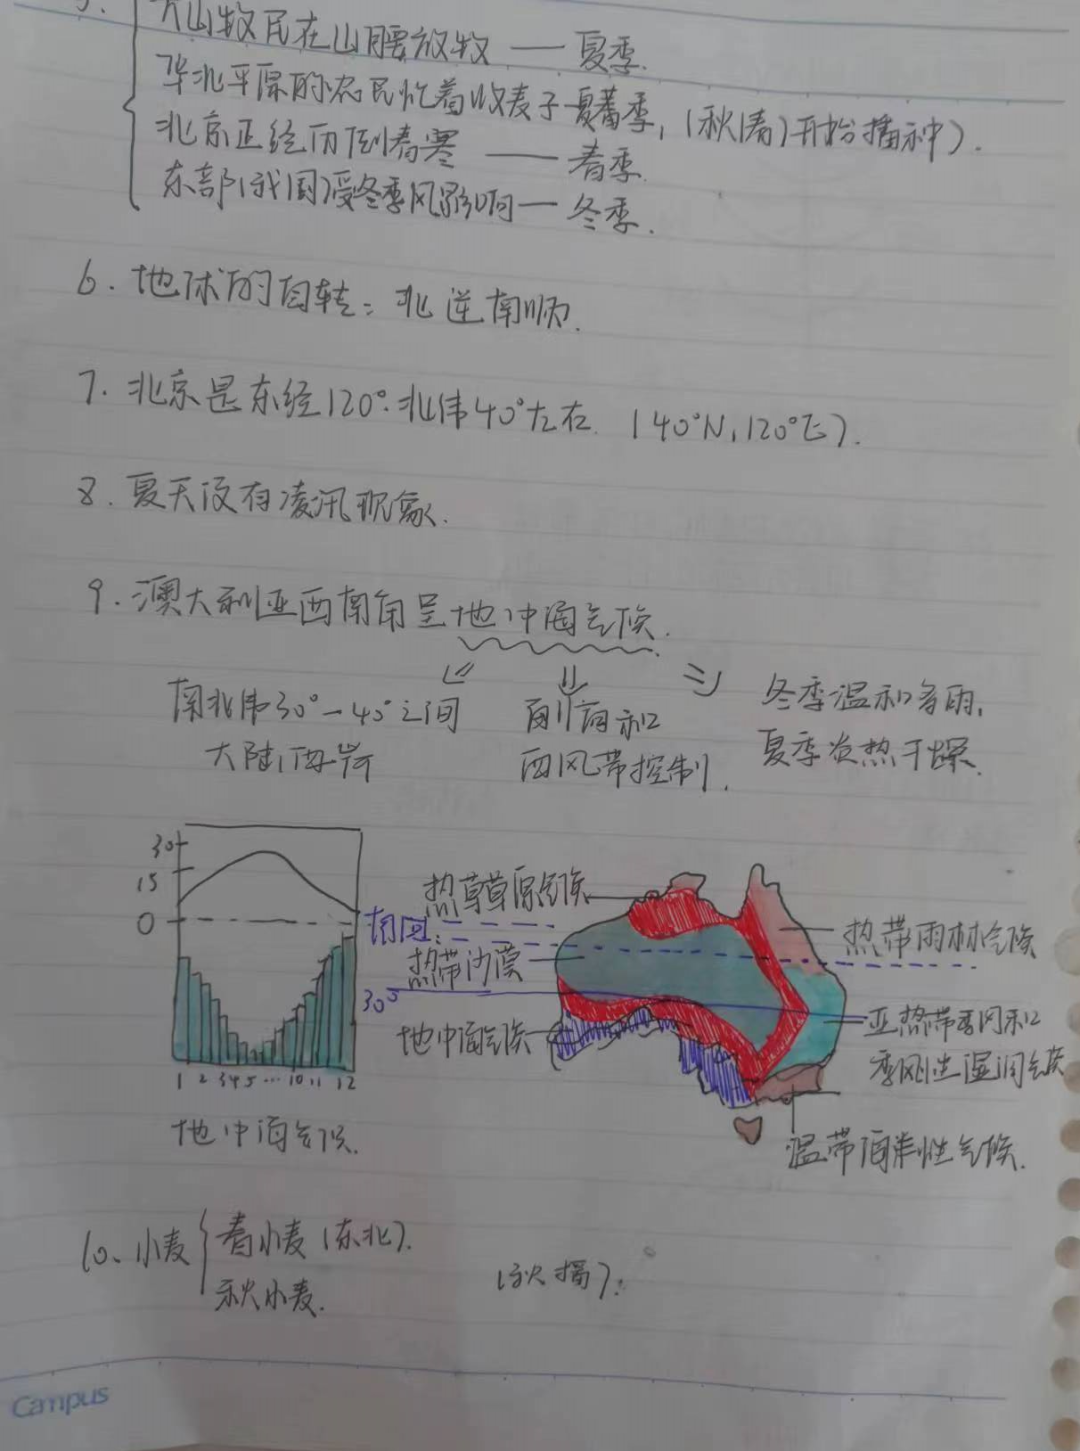 5.
天山牧民在山腰放牧 —— 夏季.
华北平原的农民忙着收麦子 夏季, (秋(春)开始播种).
北京正经历倒春寒 —— 春季.
东部(我国)受冬季风影响 — 冬季.
6. 地球的自转: 北逆南顺.
7. 北京是东经120°. 北纬40°左右. (40°N, 120°E).
8. 夏天没有凌汛现象.
9. 澳大利亚西南角呈地中海气候.
南北纬30°—40°之间
大陆西岸
副高和
西风带控制.
冬季温和多雨,
夏季炎热干燥.
30
15
0
1 2 3 4 5 ... 10 11 12
地中海气候.
热带草原气候
南回.
热带沙漠
30°
地中海气候
热带雨林气候
亚热带季风和
季风性湿润气候
温带海洋性气候.
10. 小麦
春小麦 (东北).
秋小麦.
(秋播).
Campus